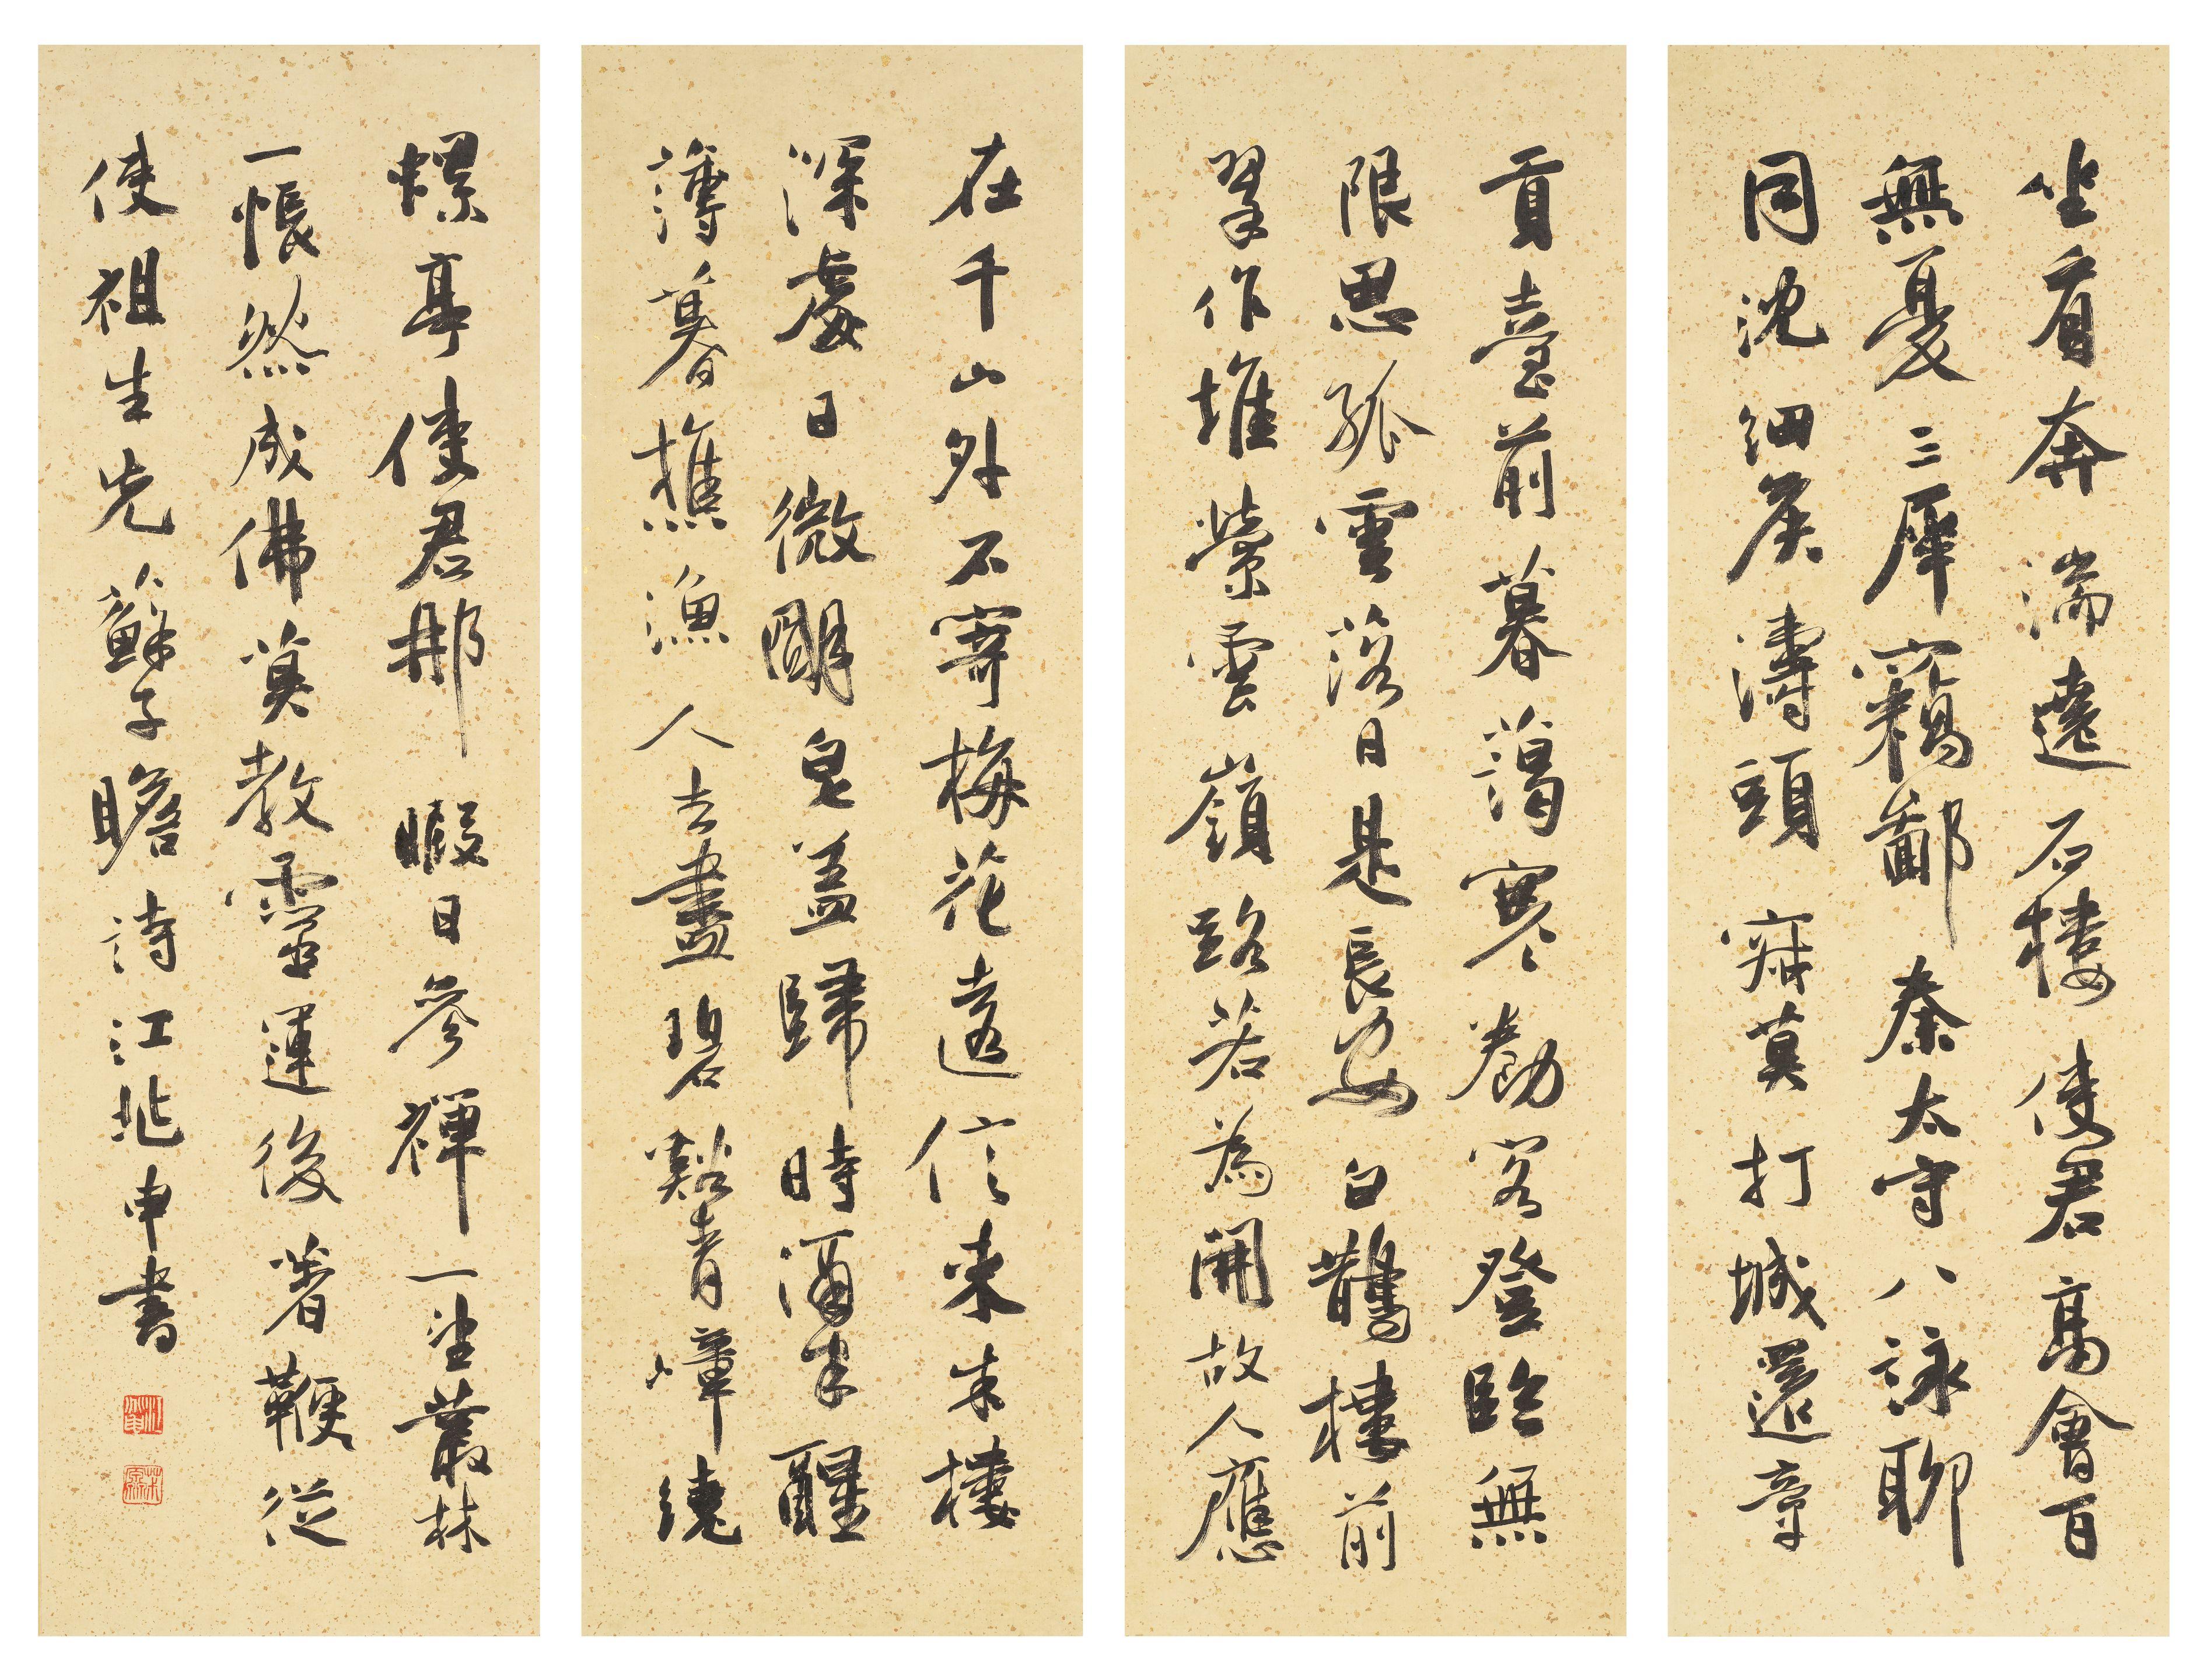 坐看奔湍遶石樓使君高會百
無憂三犀竊鄙秦太守八詠聊
同沈細侯濤頭寂莫打城還章
貢臺前暮藹寒勌客登臨無
限思孤雲落日是長安白鵲樓前
翠作堆縈雲嶺路若為開故人應
在千山外不寄梅花遠信來朱樓
深處日微明皂蓋歸時酒半醒
薄暮樵漁人去盡碧谿青嶂繞
螺亭使君那暇日參禪一望叢林
一悵然成佛莫教靈運後著鞭從
使祖生先蘇子瞻詩江兆申書